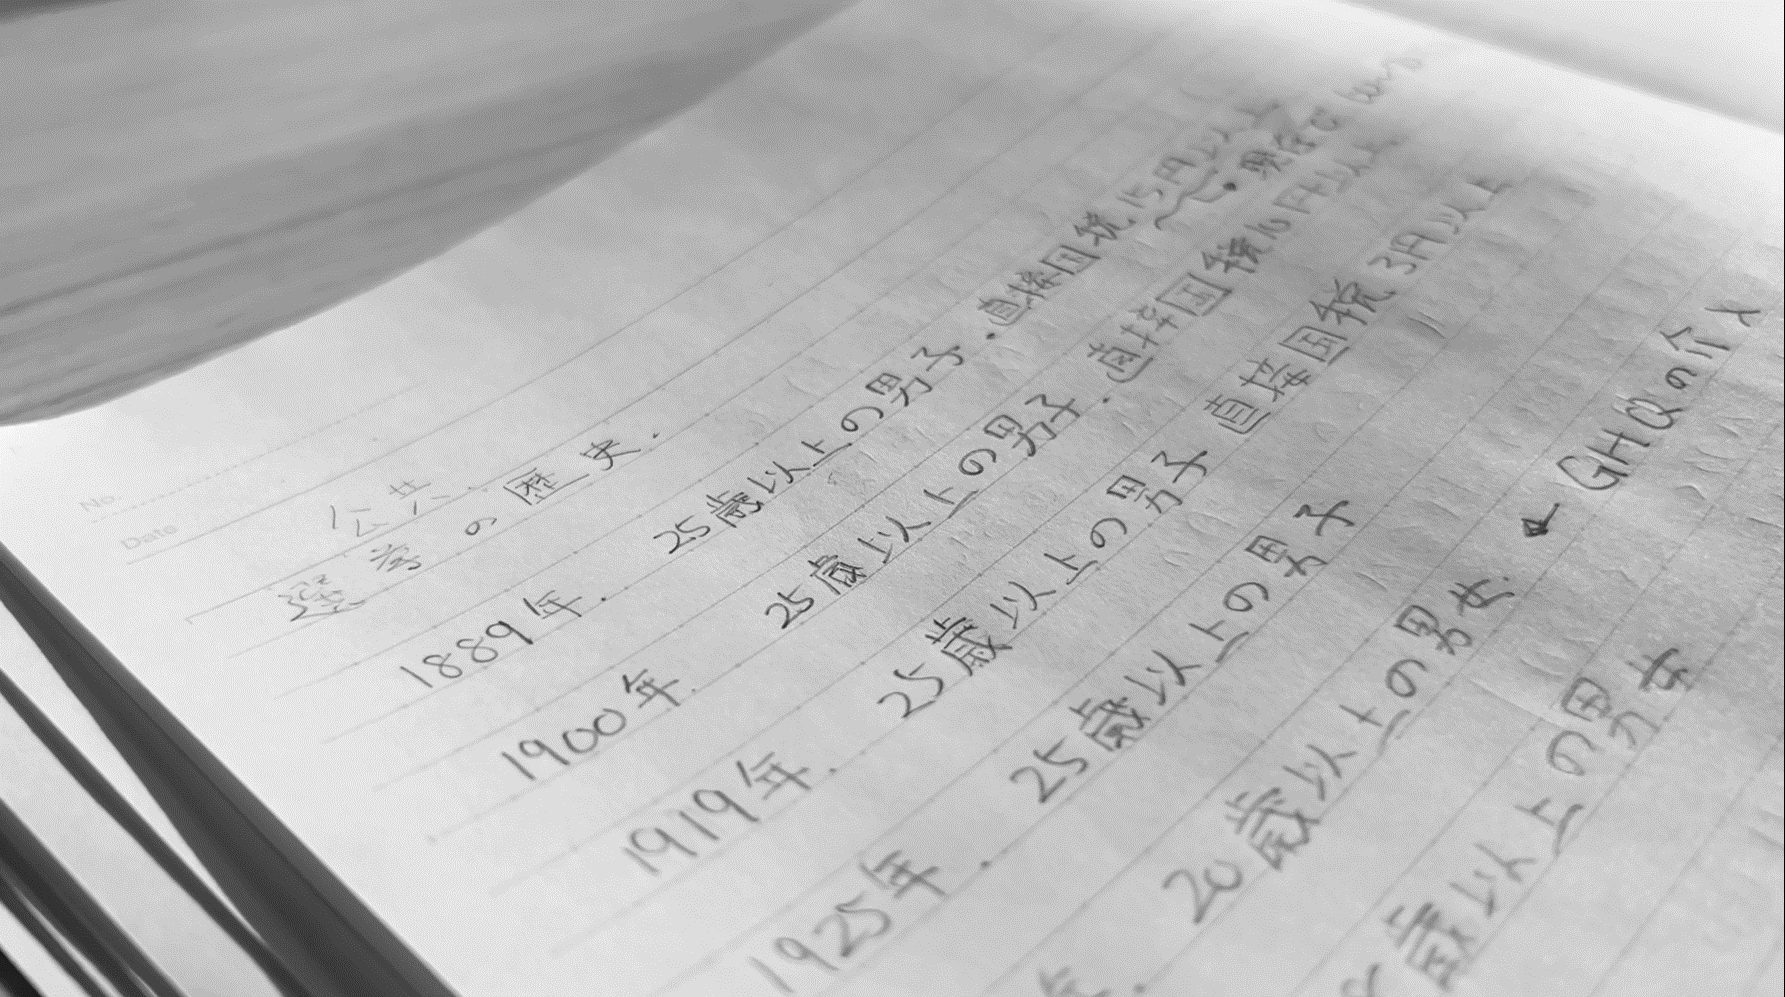 No.
Date
公共
選挙の歴史.
1889年. 25歳以上の男子.直接国税15円以上
1900年. 25歳以上の男子.直接国税10円以上.
1919年. 25歳以上の男子 直接国税3円以上
1925年. 25歳以上の男子
年. 20歳以上の男女. ← GHQの介入
歳以上の男女